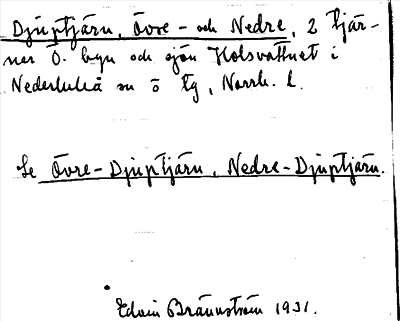 Djuptjärn, Övre - och Nedre, 2 tjär-
nar Ö. byn och sjön Holsvattnet i
Nederluleå sn ö tg, Norrb. l.
Se Övre-Djuptjärn, Nedre-Djuptjärn.
Edvin Brännström 1931.